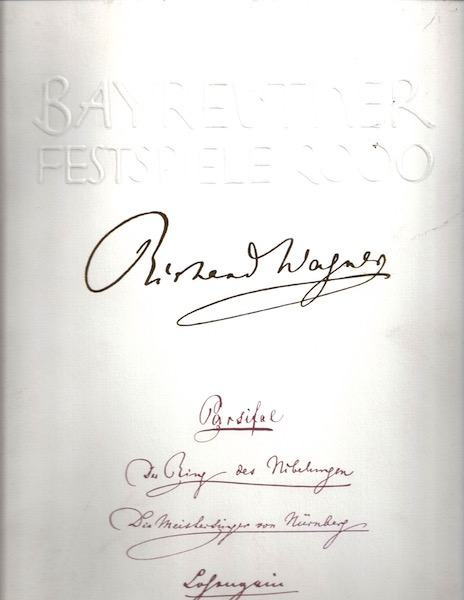 BAYREUTHER
FESTSPIELE 2000
Richard Wagner
Parsifal
Der Ring des Nibelungen
Die Meistersinger von Nürnberg
Lohengrin